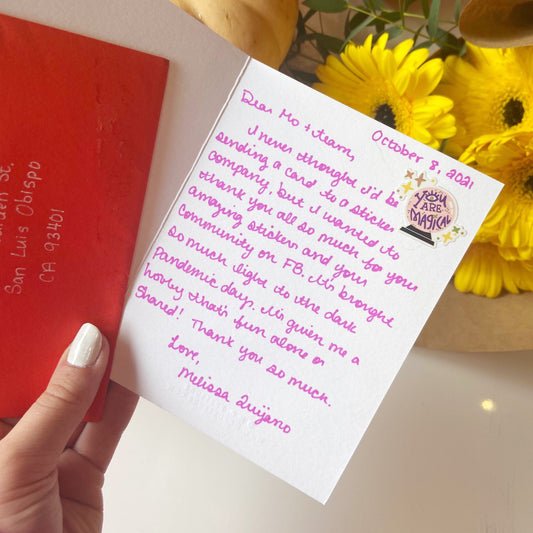 St.
San Luis Obispo
CA 93401
October 8, 2021
Dear Mo + team,
I never thought I'd be
sending a card to a sticker
company, but I wanted to
thank you all so much for your
amazing stickers and your
community on FB. It's brought
so much light to the dark
pandemic days. It's given me a
hobby that's fun alone or
shared! Thank you so much.
Love,
Melissa Quijano
YOU
ARE
MAGICAL